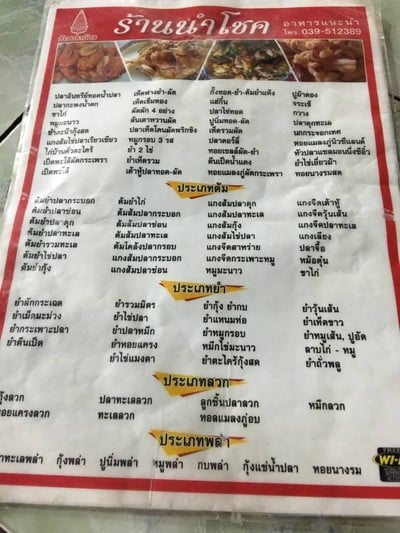 ร้านนำโชค
อาหารแนะนำ
โทร. 039-512389
ปลาอินทรีย์ทอดน้ำปลา เห็ดฟางยำ-ผัด กุ้งทอด-ยำ-ต้มยำแห้ง ปูผัดอง
ปลากะพงน้ำตก เห็ดเข็มทอง แฮ่กึ๊น จระเข้
ขาไก่ ผัดผัก 4 อย่าง ปลาไข่ทอด กวาง
หมูมะนาว ลันเตาหวานผัด ปูนิ่มทอด-ผัด ปลาดุกทะเล
ยำคะน้ากุ้งสด ปลาเห็ดโคนผัดพริกขิง เห็ดรวมผัด นกกระจอกเทศ
แกงส้มไข่ปลาเรียวเซียว หมูกรอบ 3 รส ปลาดอร์ลี่ หอยแมลงภู่นิวซีแลนด์
ไก่บ้านคั่วตะไคร้ ยำ 2 ไข่ หอยเชลล์ผัด-ยำ หัวปลาแซลมอนนึ่งซีอิ๊ว
เป็ดพะโล้ผัดกระเพรา ยำเห็ดรวม ตีนเป็ดน้ำแดง ยำไข่เยี่ยวม้า
เป็ดพะโล้ เต้าหู้ปลาทอด-ผัด หอยแมลงภู่ผัดกระเพรา หอยนางรมสด
ประเภทต้ม
ต้มยำปลากระบอก ต้มยำไก่ แกงส้มปลาดุก แกงจืดเต้าหู้
ต้มยำปลาช่อน ต้มส้มปลากระบอก แกงส้มปลาทะเล แกงจืดวุ้นเส้น
ต้มยำปลาดุก ต้มส้มปลาทะเล แกงส้มกุ้ง แกงจืดปลาทะเล
ต้มยำปลาทะเล ต้มส้มปลาช่อน แกงส้มไข่ปลา แกงเลียง
ต้มยำรวมทะเล ต้มส้มปลาช่อน แกงจืดสาหร่าย ปลาจื้อ
ต้มยำไข่ปลา ต้มโคล้งปลากรอบ แกงจืดกระเพาะหมู หม้อตุ๋น
ต้มยำกุ้ง แกงส้มปลาช่อน หมูมะนาว ขาไก่
ประเภทยำ
ยำผักกระเฉด ยำรวมมิตร ยำกุ้ง ยำกบ ยำวุ้นเส้น
ยำเม็ดมะม่วง ยำไข่ปลา ยำแหนมห่อ ยำเห็ดขาว
ยำกระเพาะปลา ยำปลาหมึก ยำหมูกรอบ ยำหมูเส้น, ปูอัด
ยำตีนเป็ด ยำหอยแครง หมึกไข่มะนาว ลาบไก่ - หมู
ยำไข่แมงดา ยำตะไคร้กุ้งสด ยำถั่วพลู
ประเภทลวก
กุ้งลวก ปลาทะเลลวก ลูกชิ้นปลาลวก หมึกลวก
หอยแครงลวก ทะเลลวก หอยแมลงภู่อบ
ประเภทพล่า
ปลาทะเลพล่า กุ้งพล่า ปูนิ่มพล่า หมูพล่า กบพล่า กุ้งแช่น้ำปลา หอยนางรม
FREE
WI-